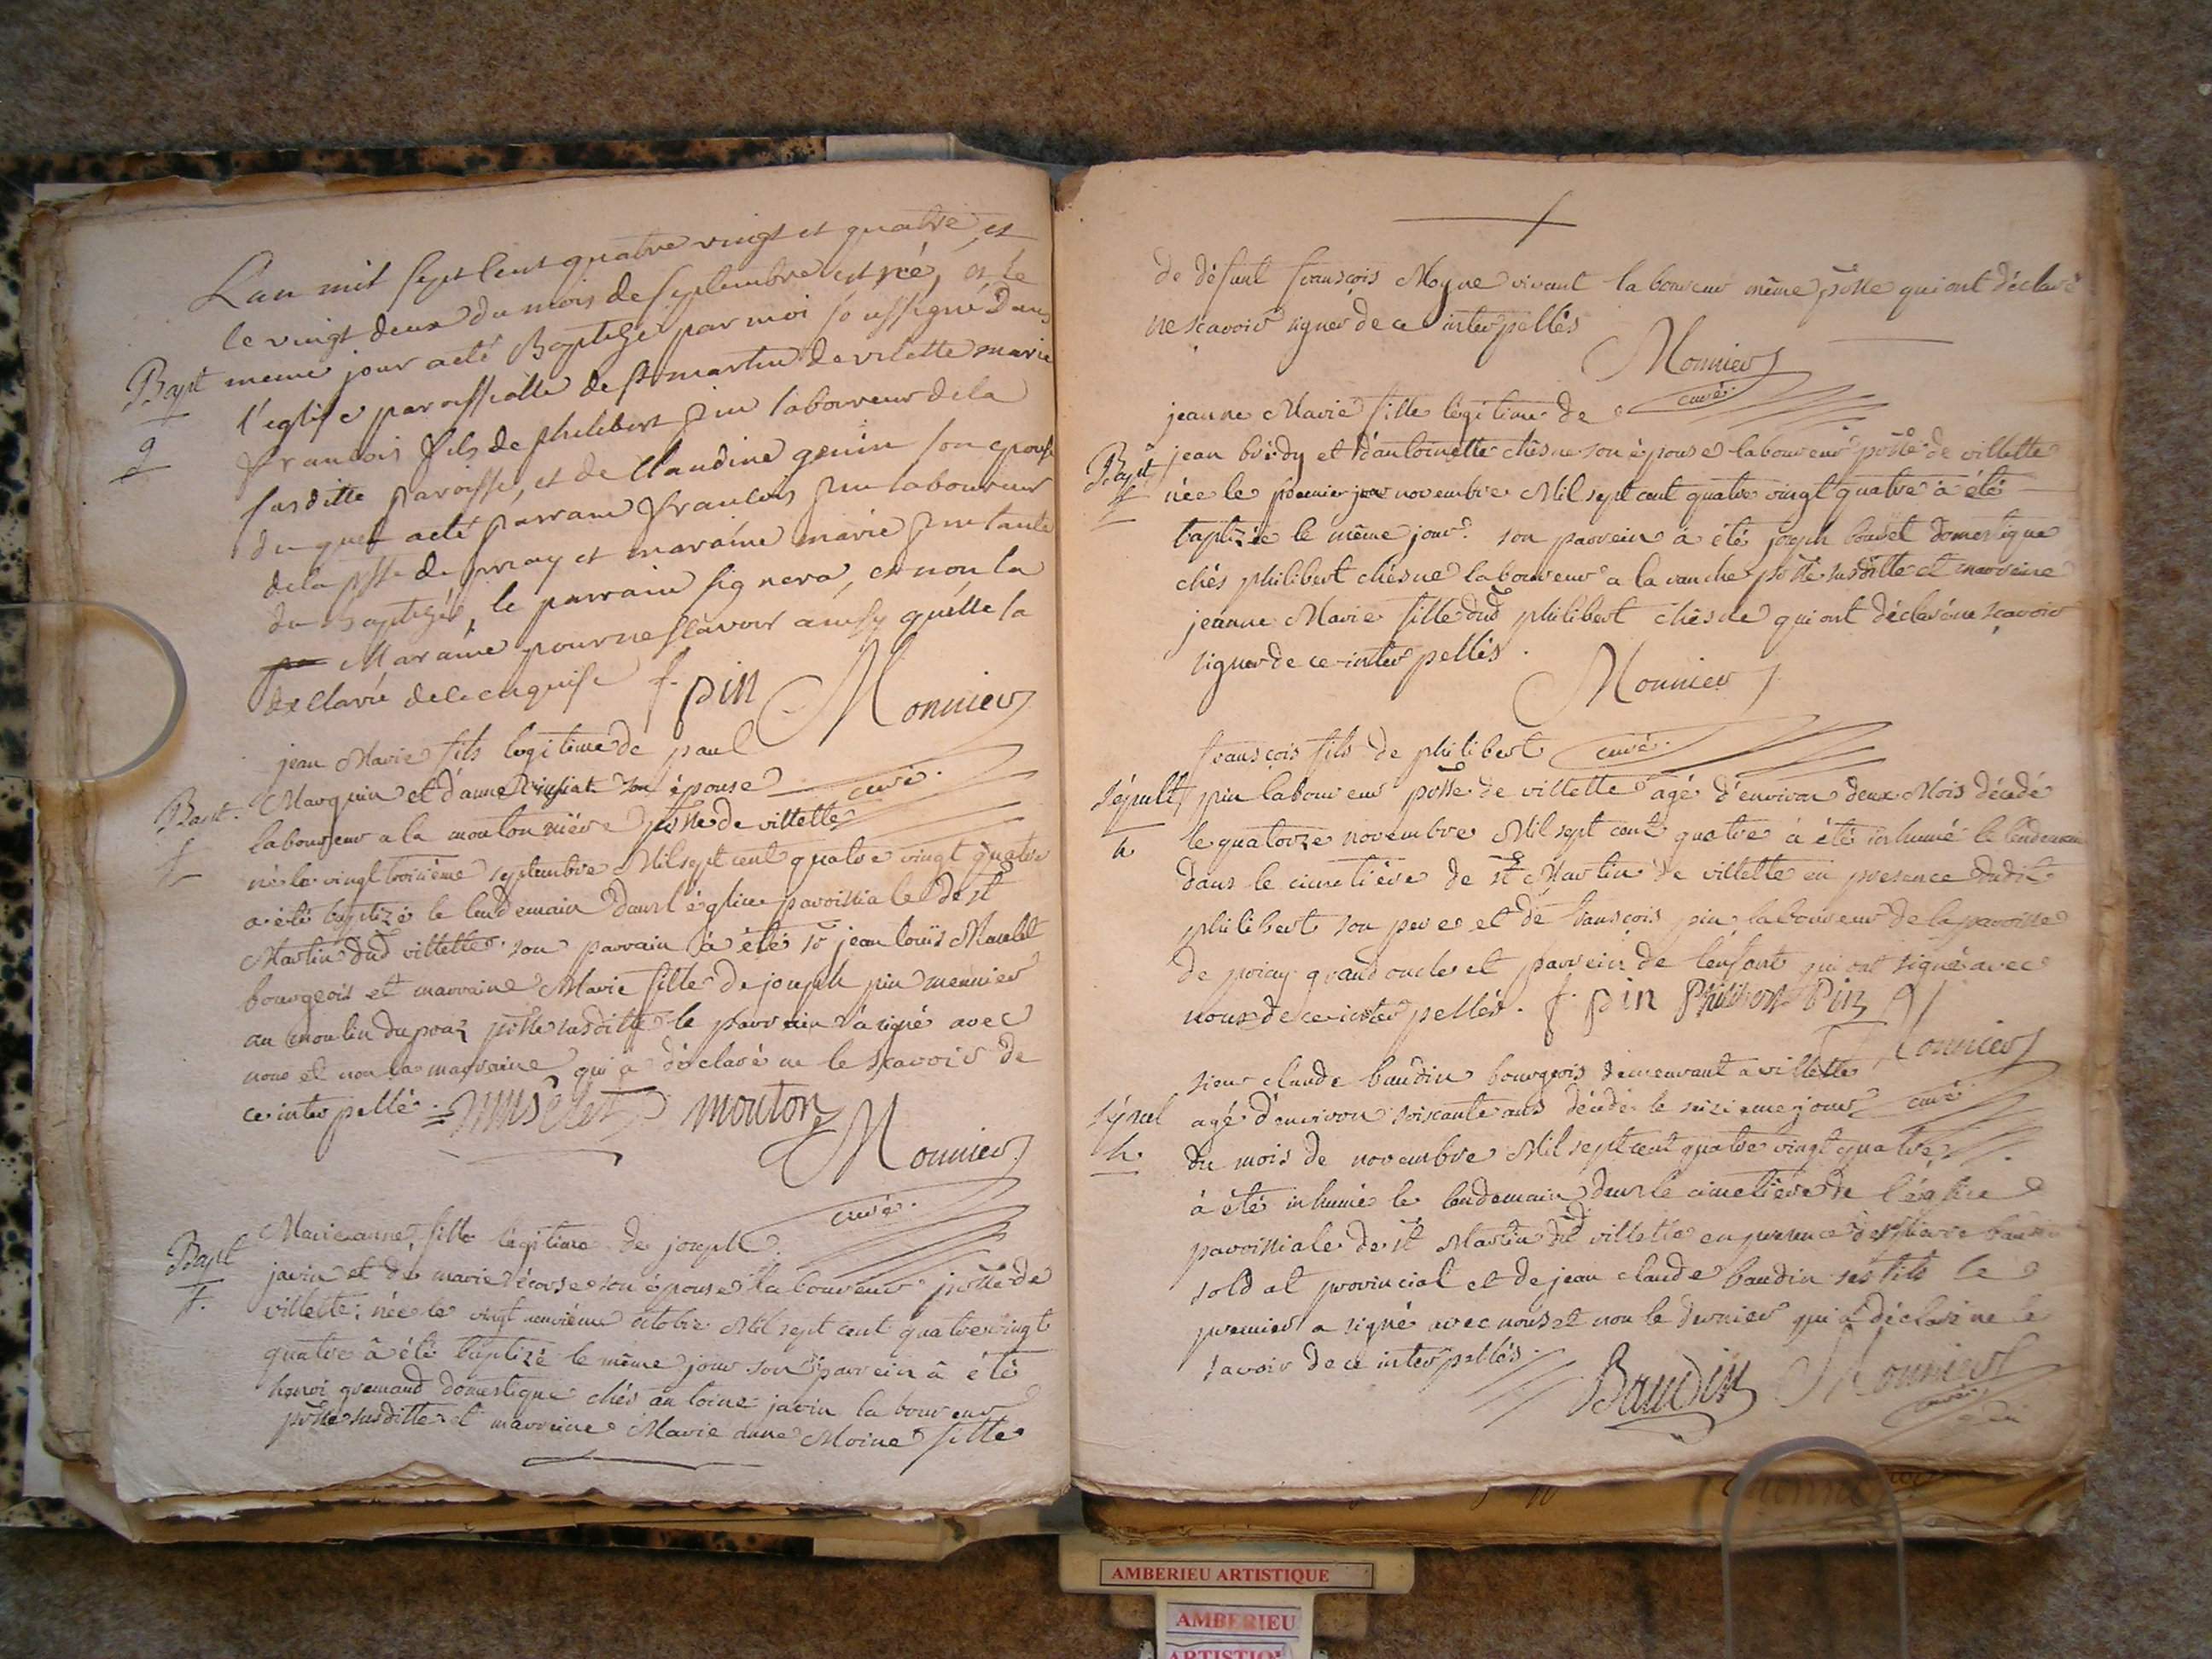 L'an mil sept cent quatre vingt et quatre, et
le vingt deux du mois de septembre est né, et le
Bapt meme jour a eté Baptizé par moi soussigné Dans
l'eglise paroissialle de st martin de vilette marie
g
francois fils de philibert pin laboureur de la
susditte paroisse, et de Claudine genin son epouse
du quel a eté parrain francois pin laboureur
de la psse de priay et maraine marie pin tante
du baptizé, le parrain signera, et non la
Maraine pour ne scavoir ainsy qu'elle l'a
declaré de ce enquise f. pin Monnier
curé.
jean Marie fils legitime de paul
Bapt. Marquin et d'anne son épouse
laboureur a la moutonnière psse de villette
f
né le vingt troisième septembre Mil sept cent quatre vingt quatre
a été baptizé le lendemain dans l'église paroissiale de st
Martin dud villette son parrain à été sr jean louis
bourgeois et marraine Marie fille de joseph pin meunier
au moulin du psse susditte le parrain a signé avec
nous et non la marraine qui a déclaré ne le scavoir de
ce interpellé. mouton Monnier
curé.
Bapt Marie anne fille légitime de joseph
f. javin et de marie son épouse laboureur psse de
villette, née le vingt neuvième octobre Mil sept cent quatre vingt
quatre à été baptizé le même jour son parrein à été
henri gremaud domestique chés antoine javin laboureur
psse susditte et marreine Marie anne Moine fille
de défunt fransçois Moyne vivant laboureur même psse qui ont déclaré
ne scavoir signer de ce interpellés
Monnier
curé
jeanne Marie fille légitime de
Bapt jean brédy et d'antoinette chêsne son épouse laboureur psse de villette
f née le premier novembre Mil sept cent quatre vingt quatre à été
baptizée le même jour. son parrein à été joseph domestique
chés philibert chêsne laboureur a la psse susditte et marreine
jeanne Marie fille dud philibert chêsne qui ont déclaré ne scavoir
signer de ce interpellés.
Monnier
curé.
fransçois fils de philibert
sépult pin laboureur psse de villette agé d'environ deux Mois décédé
h le quatorze novembre Mil sept cent quatre à été inhumé le lendemain
dans le cimetière de st Martin de villette en presence dudit
philibert son pere et de fransçois pin laboureur de la paroisse
de priay grand oncle et parrein de l'enfant qui ont signé avec
nous de ce interpellés. f. pin Philibert Pin
Monnier
curé
sieur claude baudin bourgeois demeurant a villette
sépul agé d'environ soixante ans décédé le seizieme jour
h. du mois de novembre Mil sept cent quatre vingt quatre
à été inhumé le lendemain dans le cimetière de l'église
paroissiale de st Martin dud villette en presence de baudin
soldat provincial et de jean claude baudin ses fils le
premier a signé avec nous et non le dernier qui à déclaré ne le
savoir de ce interpellés.
Baudin Monnier
curé
AMBERIEU ARTISTIQUE
AMBERIEU
ARTISTIQUE